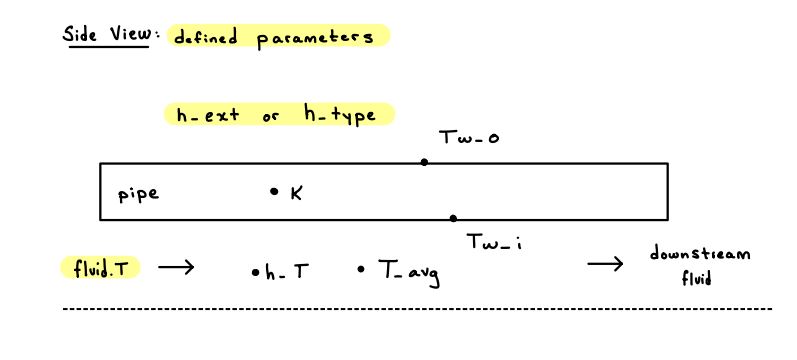 Side View: defined parameters
h_ext or h_type
Tw_o
pipe • K
Tw_i
fluid.T → • h_T • T_avg → downstream
fluid